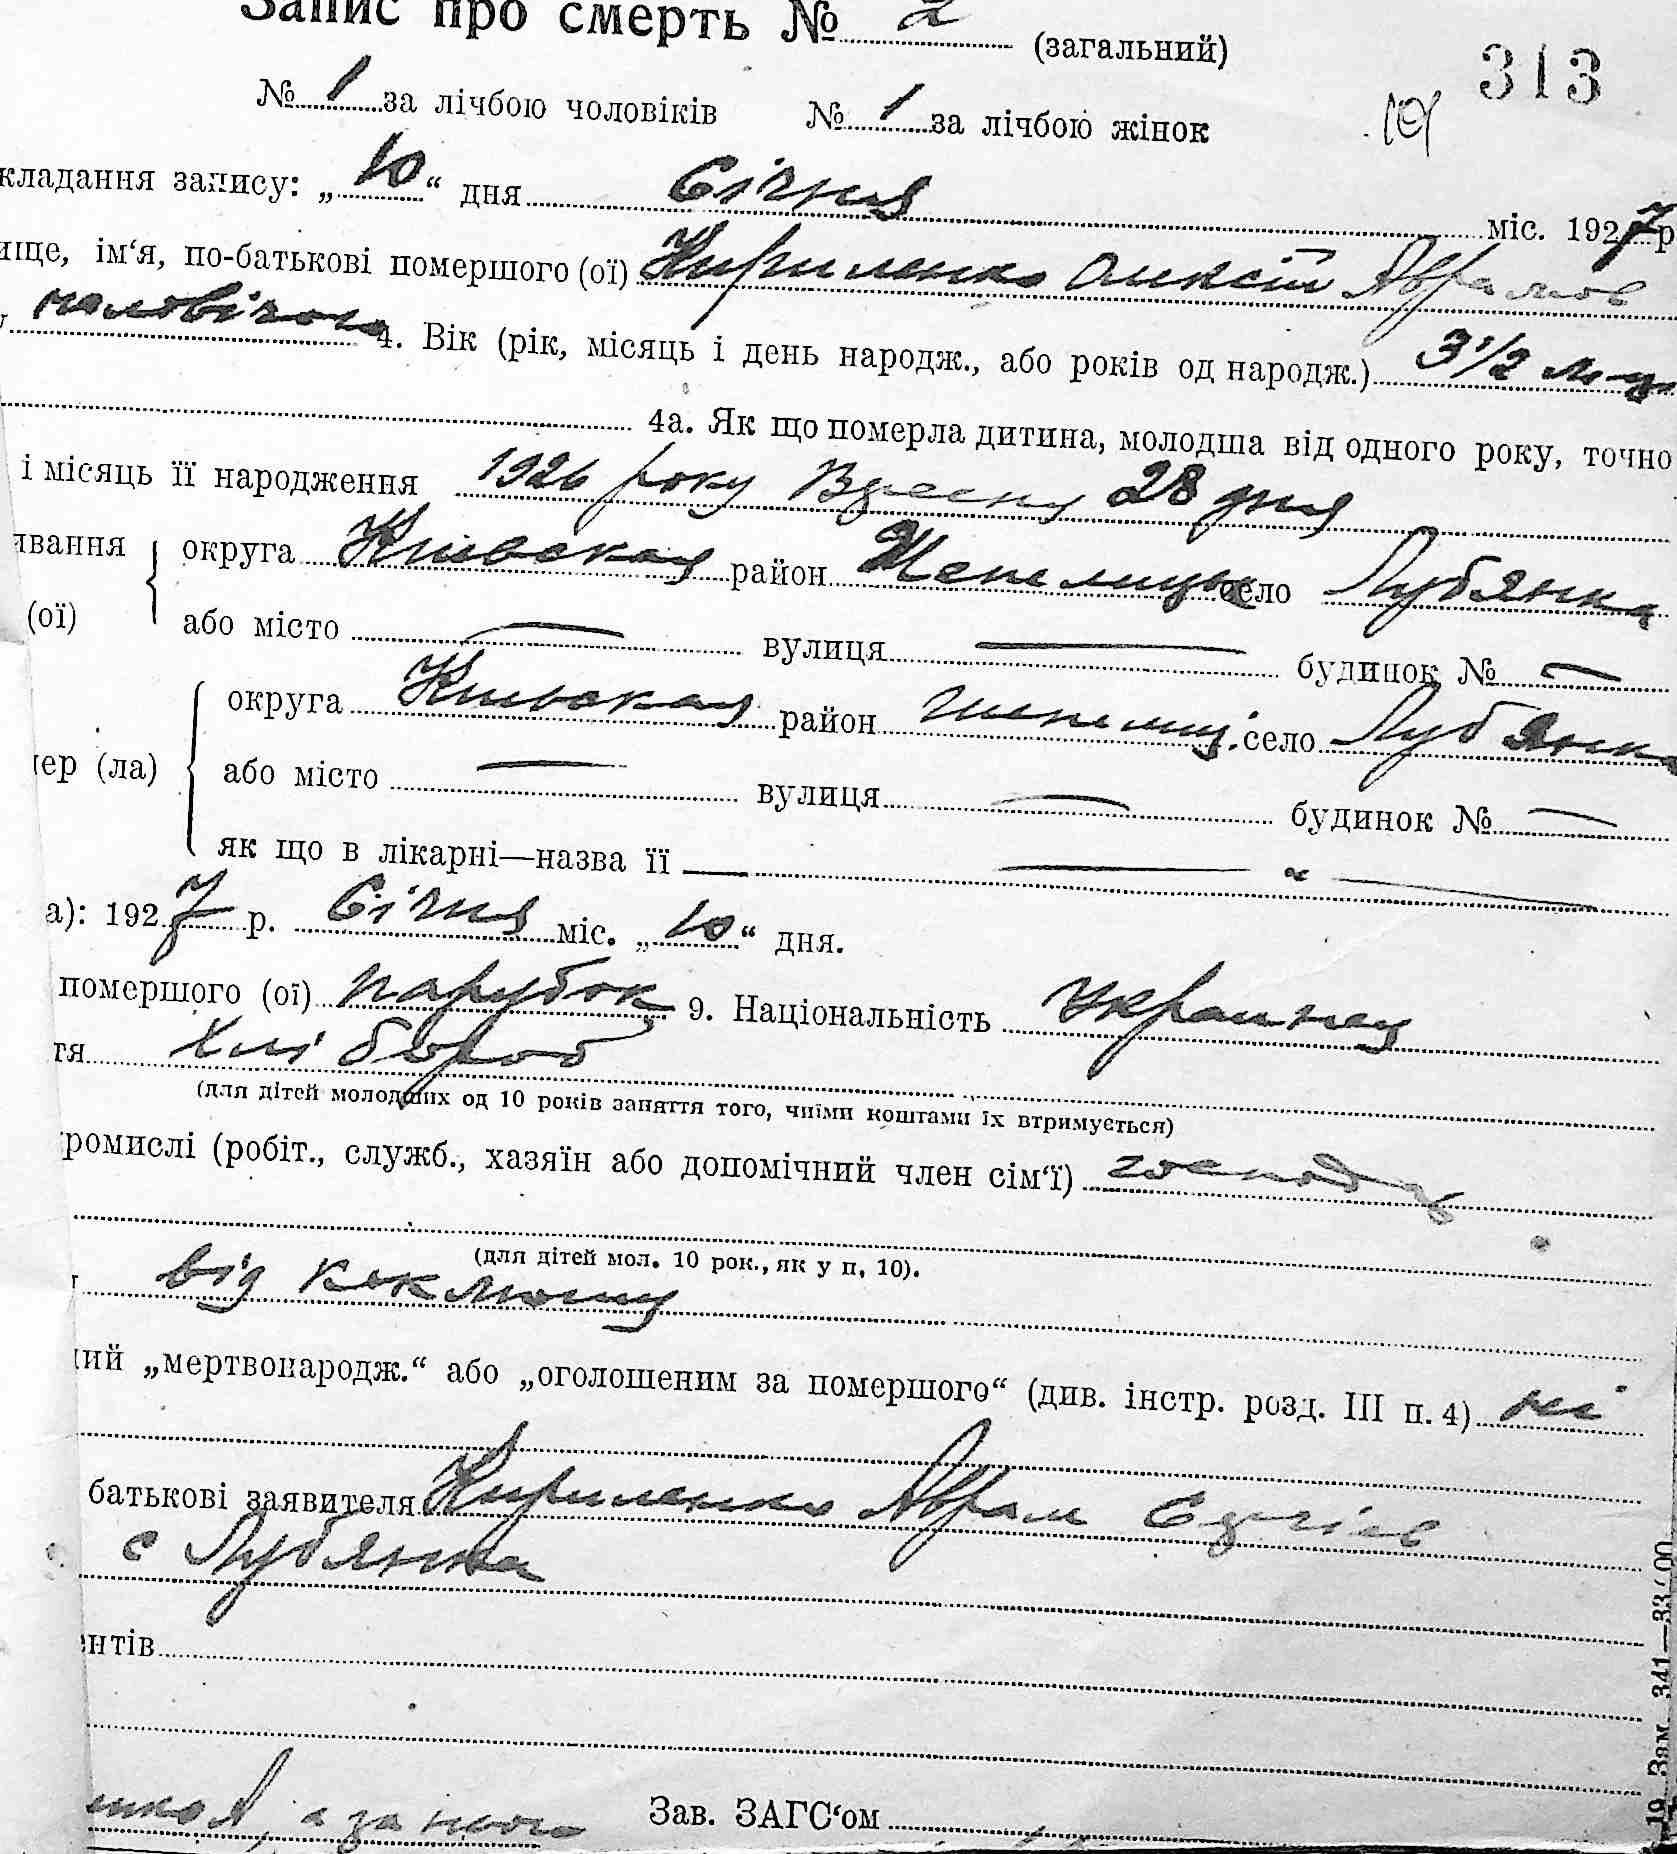 Запис про смерть № 2 (загальний)
313
№ 1 за лічбою чоловіків № 1 за лічбою жінок
кладання запису: „10“ дня Січня міс. 1927 р
ище, ім‘я, по-батькові помершого (ої) Кириленко Олексій Аврамов
чоловічого 4. Вік (рік, місяць і день народж., або років од народж.) 3 1/2 м-ця
4а. Як що померла дитина, молодша від одного року, точно
і місяць її народження 1926 року Вресня 28 дня
ивання округа Київская район Шепелицьк село Лубянка
(ої) або місто — вулиця — будинок № —
округа Київская район Шепелиц. село Лубянка
ер (ла) або місто — вулиця — будинок № —
як що в лікарні—назва її — „ —
а): 1927 р. Січня міс. „10“ дня.
помершого (ої) парубок 9. Національність Украинец
тя Хлібороб
(для дітей молодших од 10 років заняття того, чиїми коштами їх втримується)
ромислі (робіт., служб., хазяїн або допомічний член сім‘ї) господар
(для дітей мол. 10 рок., як у п. 10).
від коклюшу
ий „мертвонародж.“ або „оголошеним за помершого“ (див. інстр. розд. III п. 4) ні
батькові заявителя Кириленко Аврам
с Лубянка
нтів
а за него Зав. ЗАГС‘ом
19 Зам. 341—33